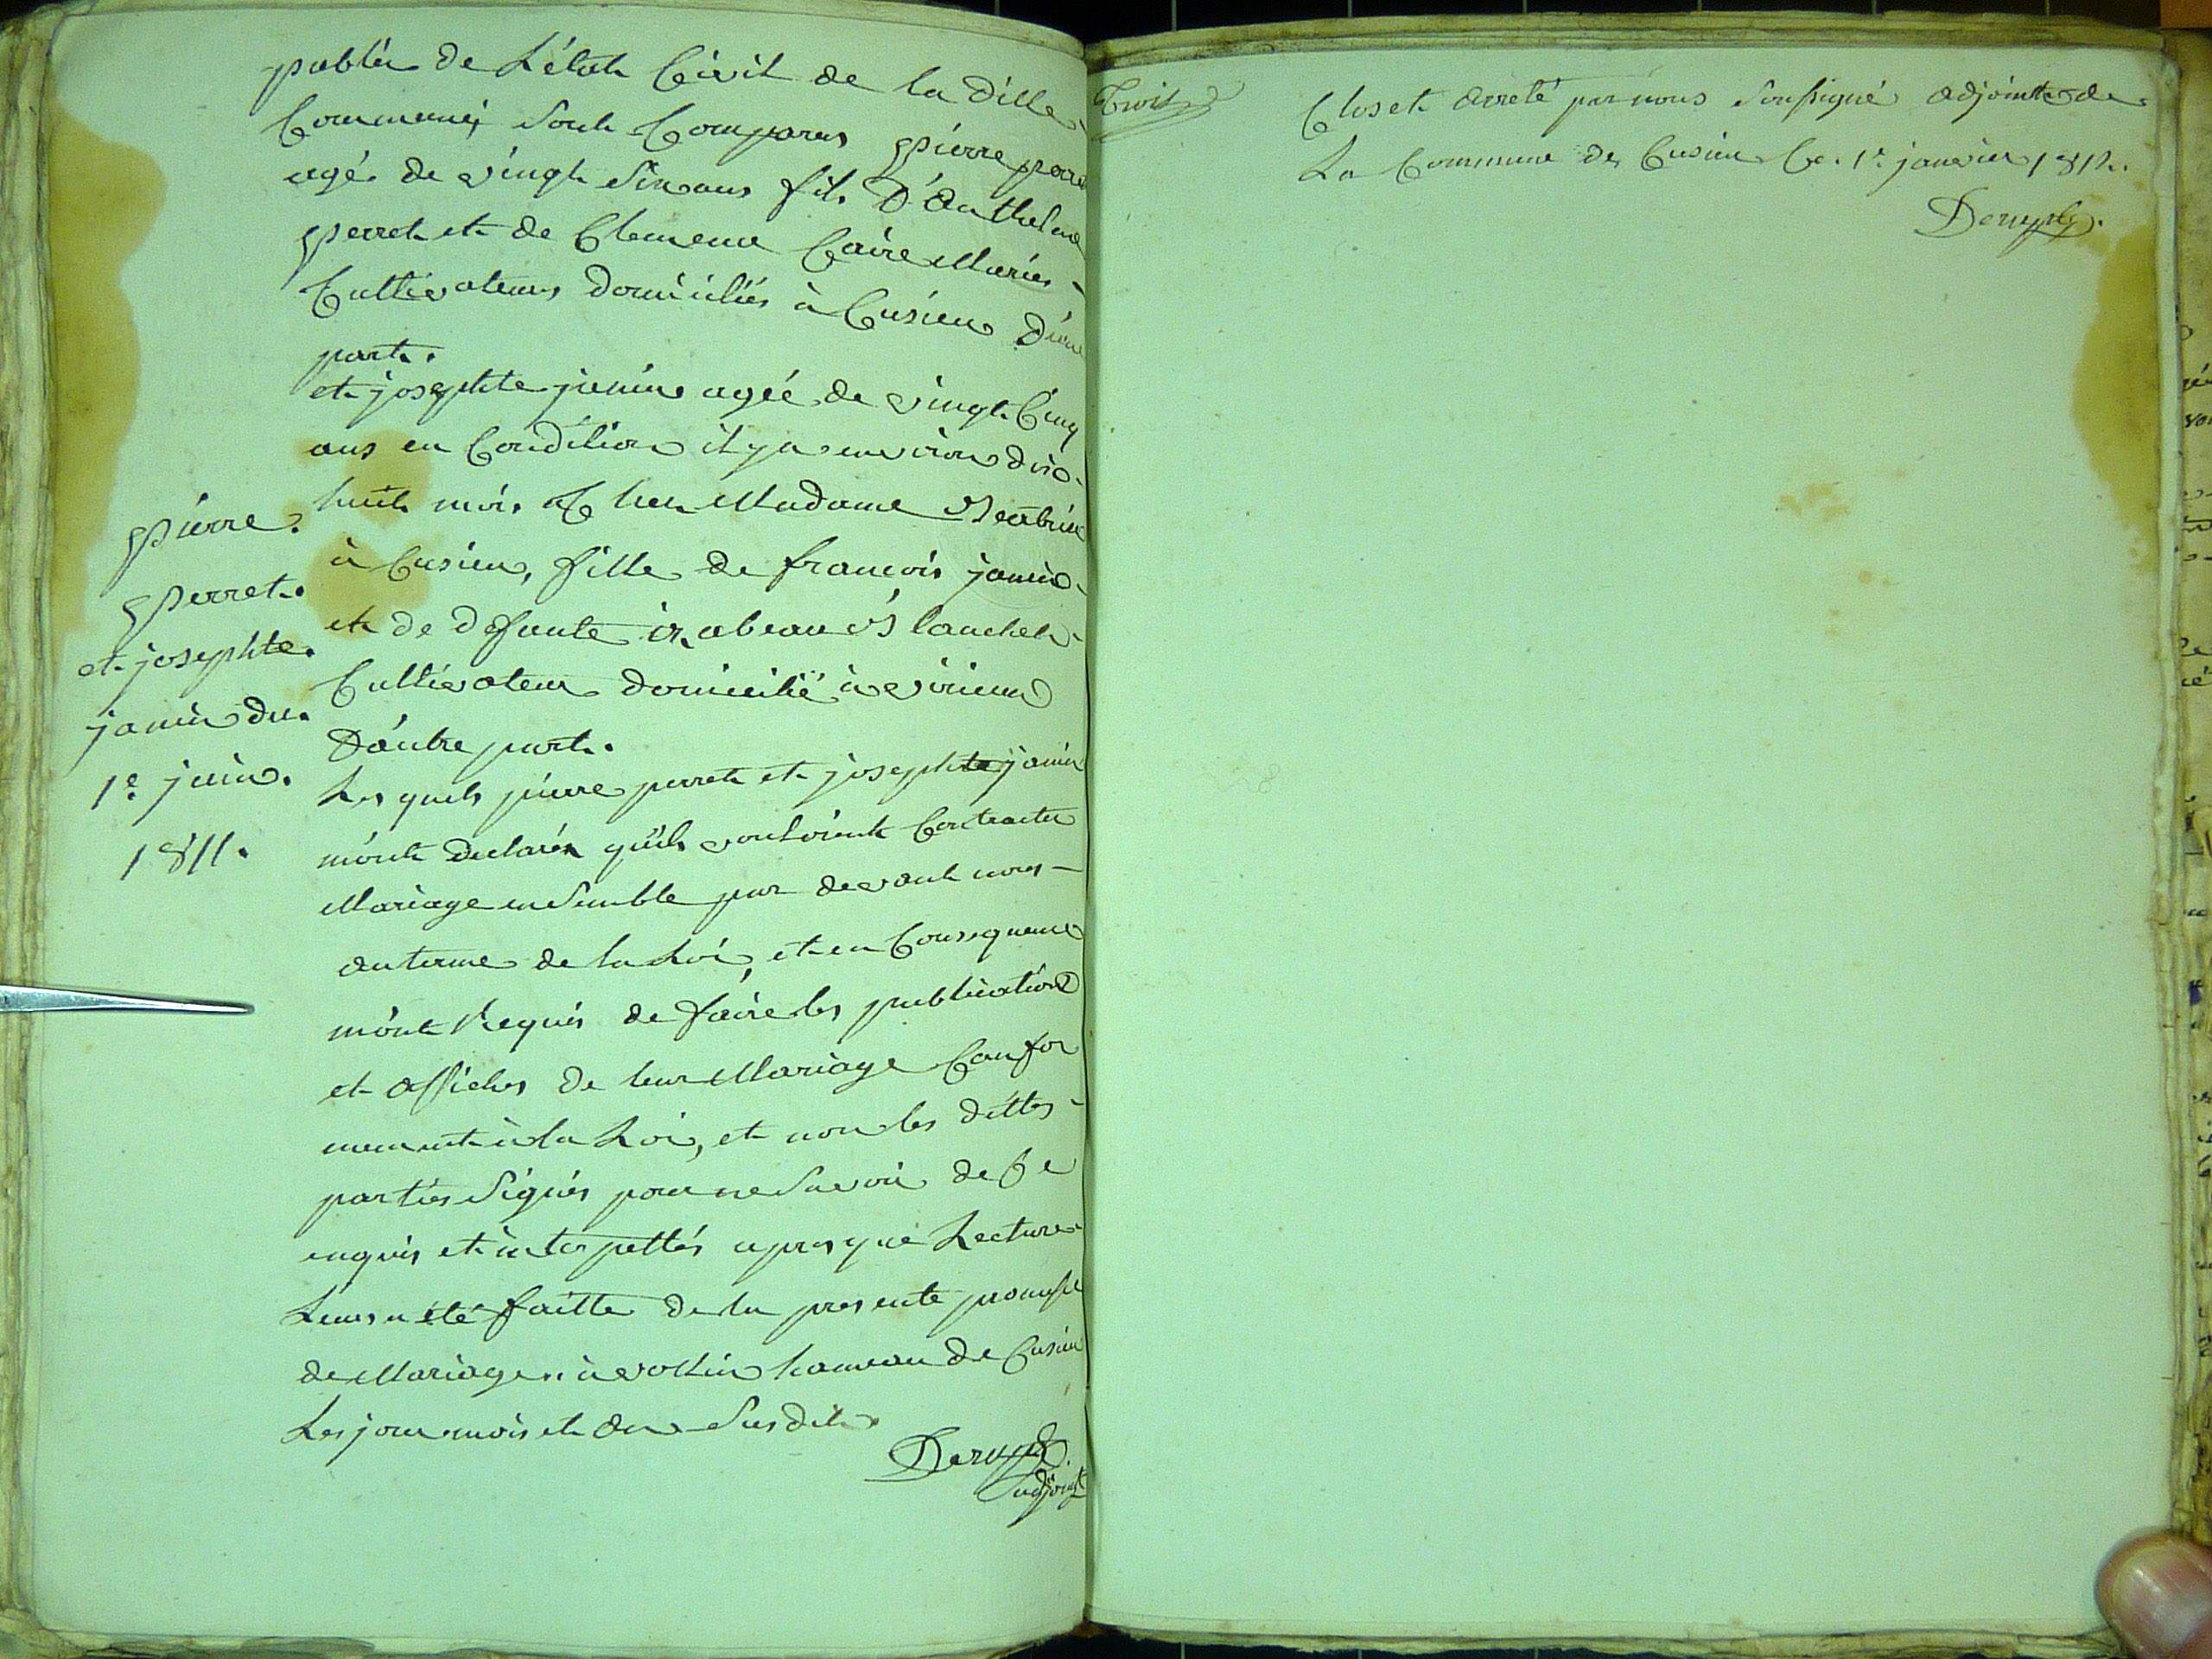 publics de L'état Civil de la ditte
Commune, sont Comparus pierre perret
agé de vingt six ans fils D'Anthelme
perret et de Clemence Caire Mariés -
Cultivateurs domiciliés à Cusieu D'une
part.
et josephte janin agée de vingt Cinq
ans en Condition il y a environ dix-
huit mois Chez Madame
à Cusieu, fille de francois janin
et de defunte izabeau Blanchet
Cultivateur domicilié à virieu
D'autre part.
Les quels pierre perret et josephte janin
m'ont declarés qu'ils vouloient Contracter
Mariage ensemble par devant nous -
au terme de la Loi, et en Consequence
m'ont Requis de faire les publications
et affiches de leur Mariage Confor
mement à la Loi, et non les dittes
parties signés pour ne savoir de Ce
enquis et interpellés apres que Lecture
Leurs a été faitte de la presente promesse
de Mariage. à vollin hameau de Cusieu
Les jour mois et an susdits
adjoint
pierre
perret.
et josephte
janin du
1e juin
1811.
Trois
Clos et Arreté par nous soussigné adjoint de
La Commune de Cusieu Ce. 1r janvier 1812.